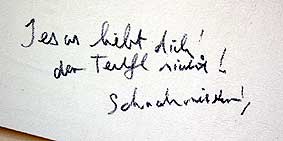 Jesus liebt dich!
der Teufel nicht!